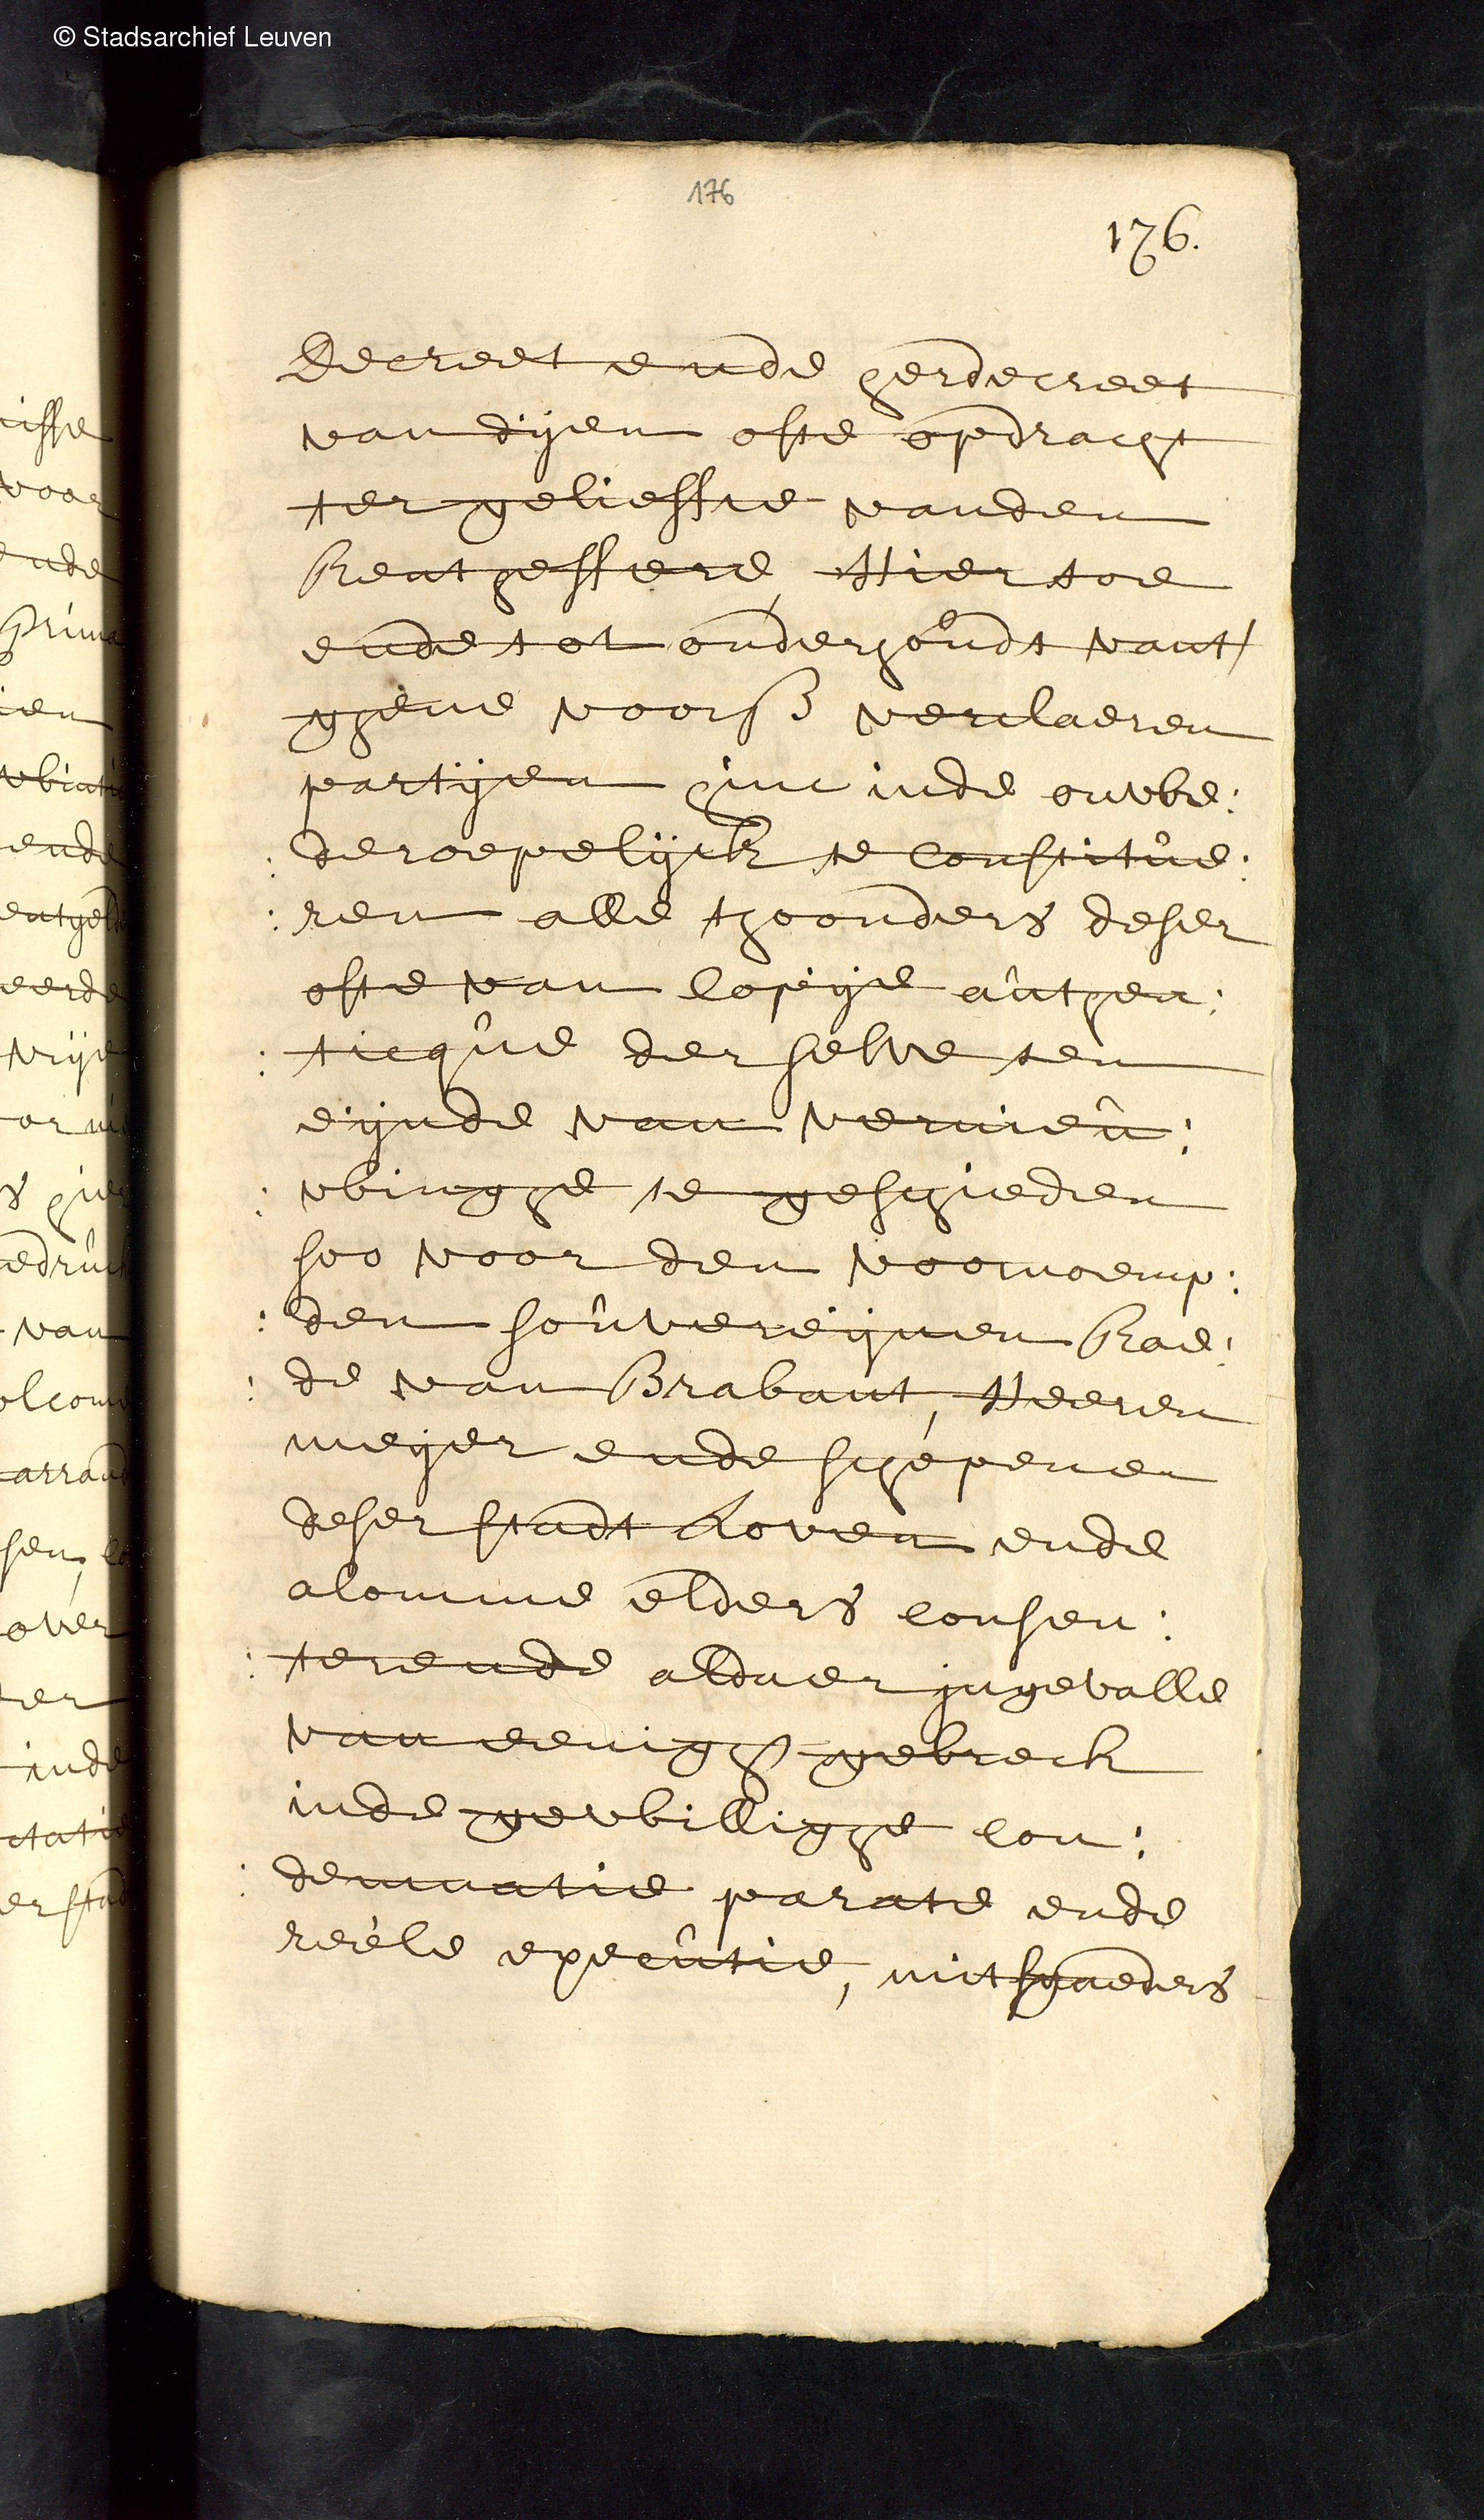 © Stadsarchief Leuven
176
176.
Decreet ende herdecreet
van dijen ofte opdracht
ter gelieffte vanden
Rentheffere, Hier toe
ende tot onderhoudt vant/
ghene voors verclaeren
partijen hinc inde onwe:
: deroepelijck te constitue:
: ren alle thoonders deser
ofte van copije authen:
: ticque der selve ten
eijnde van vernieu:
: winghe te geschieden
soo voor den voornoemp:
: den souvereijnen Rae:
: de van Brabant, Heeren
meijer ende schepenen
deser stadt Loven ende
alomme elders consen:
: terende aldaer ingevalle
van eenigh gebreck
inde gewillighe con:
: demnatie parate ende
reële executie, mitsgaeders
isse
voor
ende
prima
ien
ende
eerde
van
over
inde